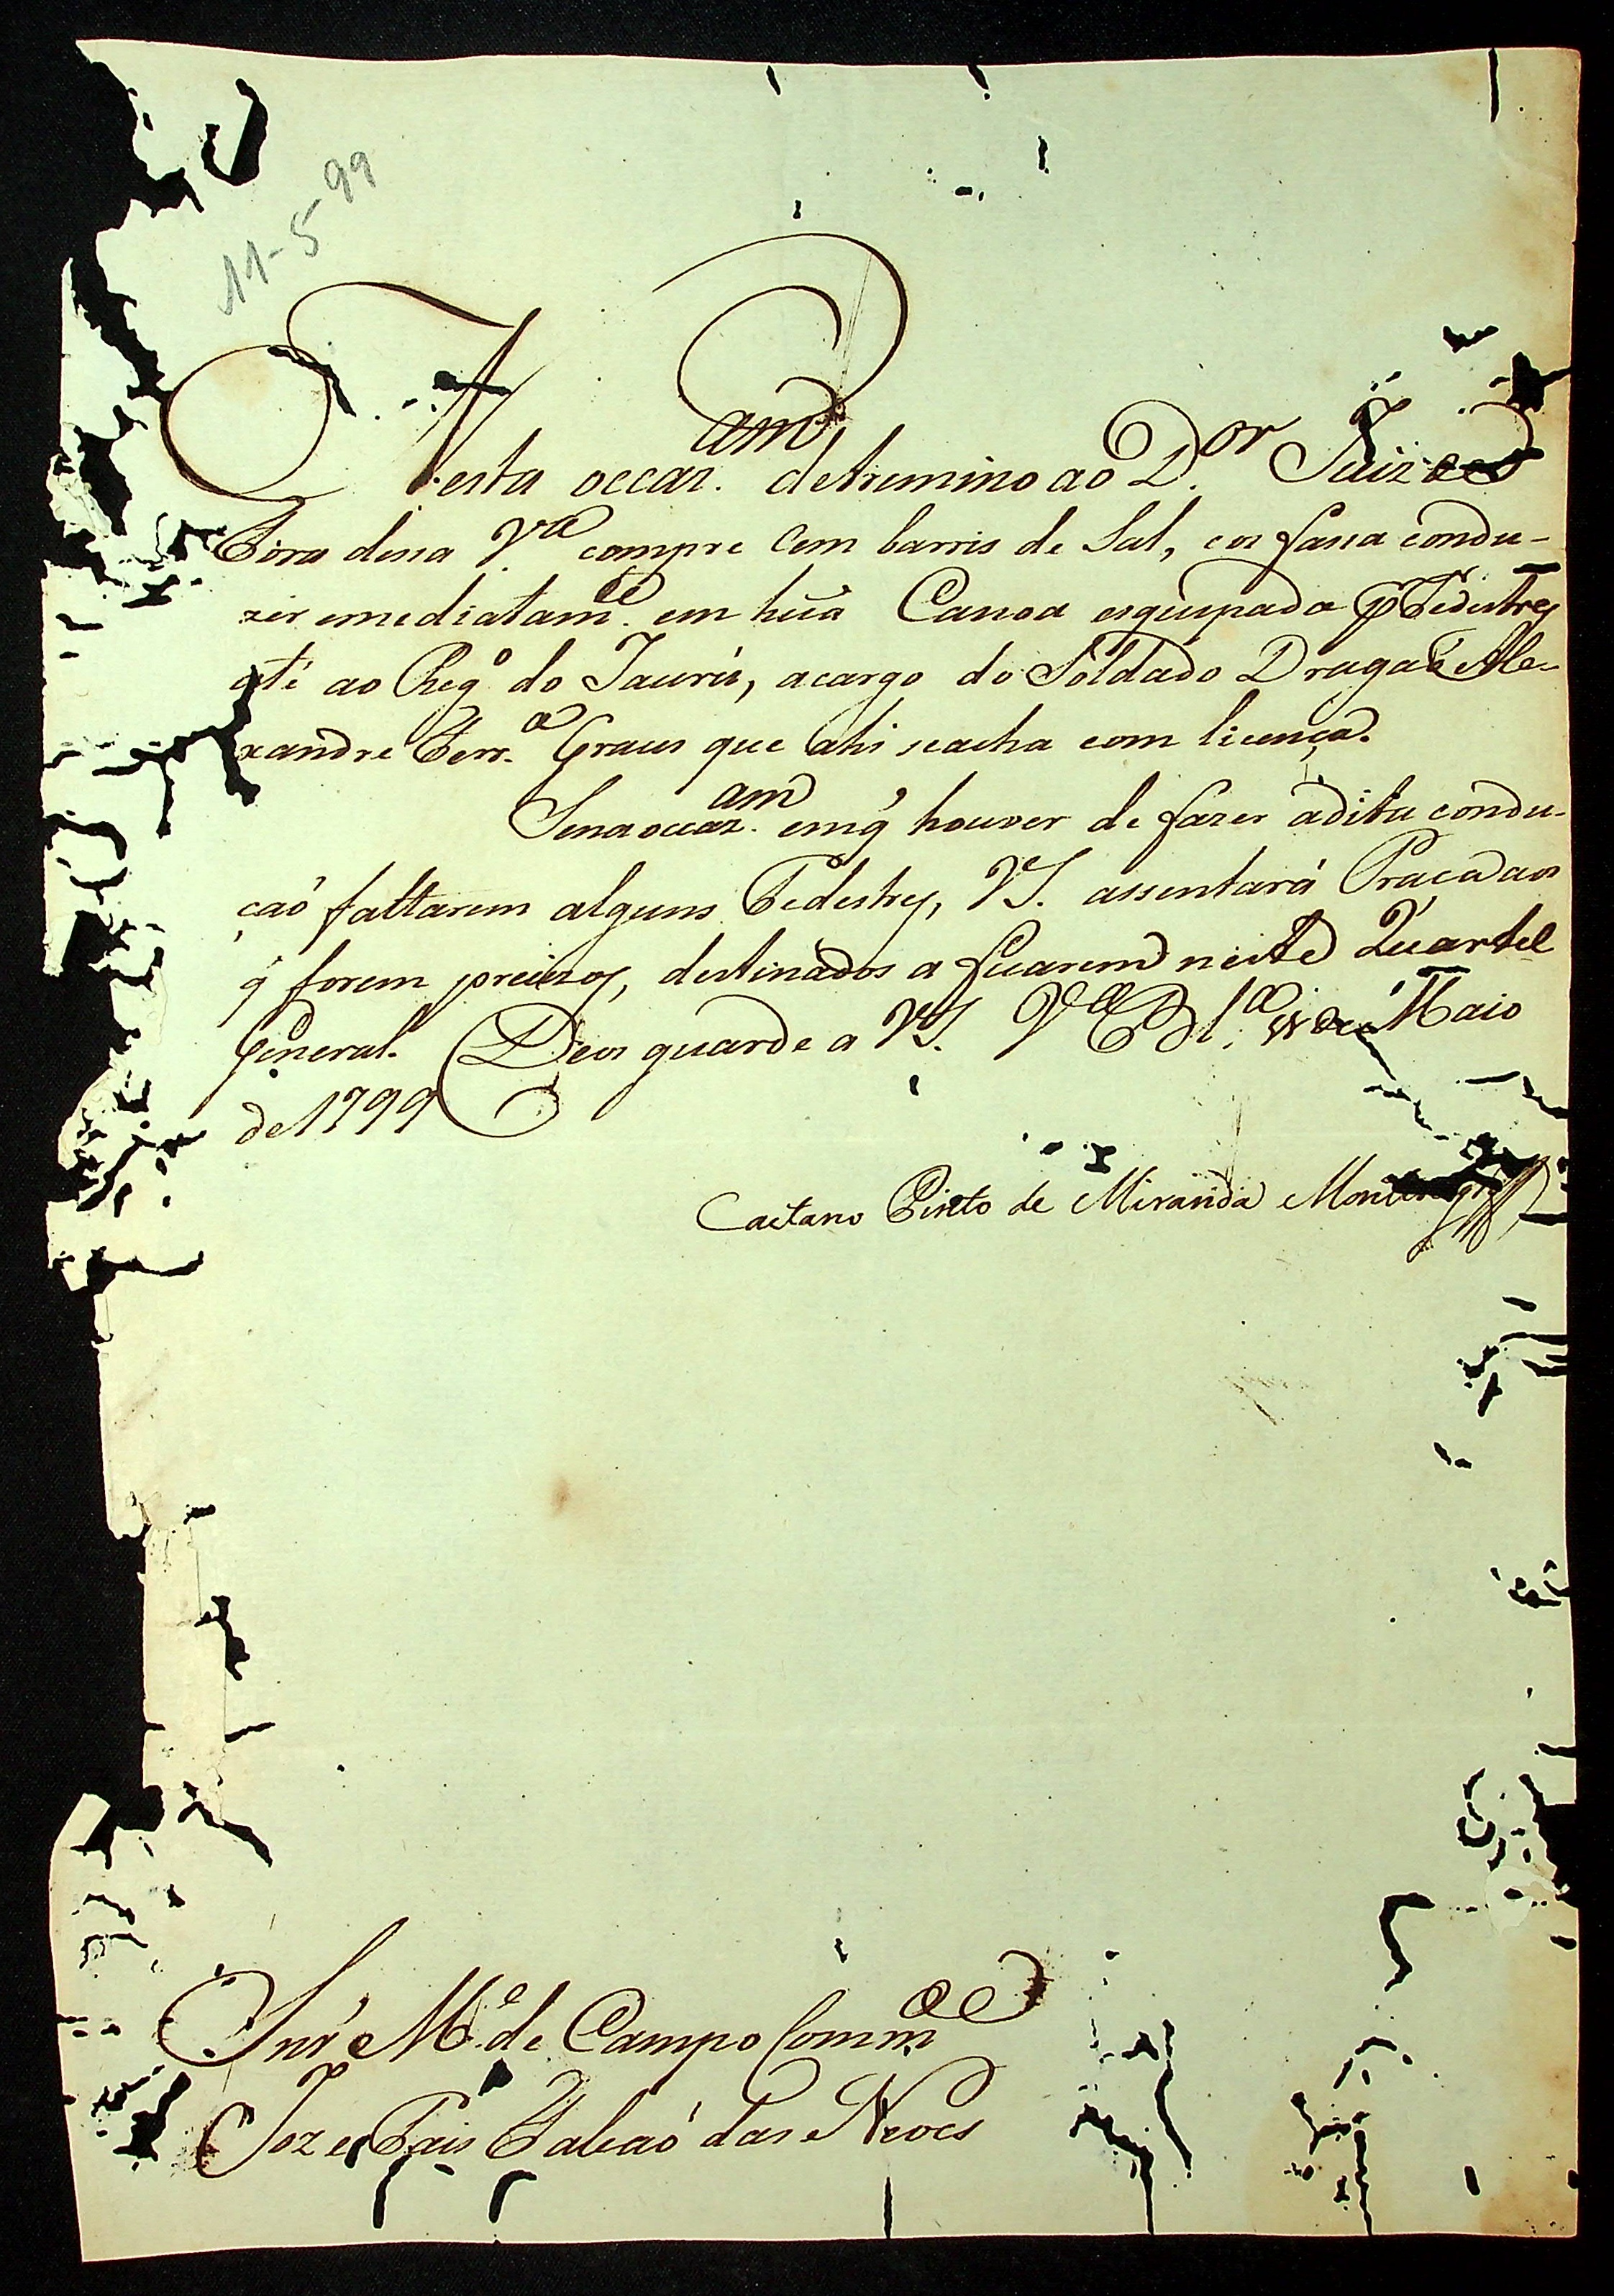 11-5-99
Nesta occaz.am detremino ao D.or Juiz de
Fora dessa V.a compre Cem barris de Sal, eos fassa condu-
zir emediatam.te em huã Canoa esquipada p.r Pedestres
até ao Reg.o do Jaurú, acargo do Soldado Dragaõ Ale-
xandre Ferr.a que ahi seacha com licença.
Senaoccaz.am emq̃ houver de fazer adita condu-
çaõ faltarem alguns Pedestres, VS. assentará Praça aos
q̃ forem precizos, destinados a ficarem neste Quartel
General. Deos guarde a VS. V.a B.la 11 de Maio
de 1799
Caetano Pinto de Miranda Montenegro
Snr̃ M.e de Campo Comm.de
Joze Pais Falcaõ das Neves